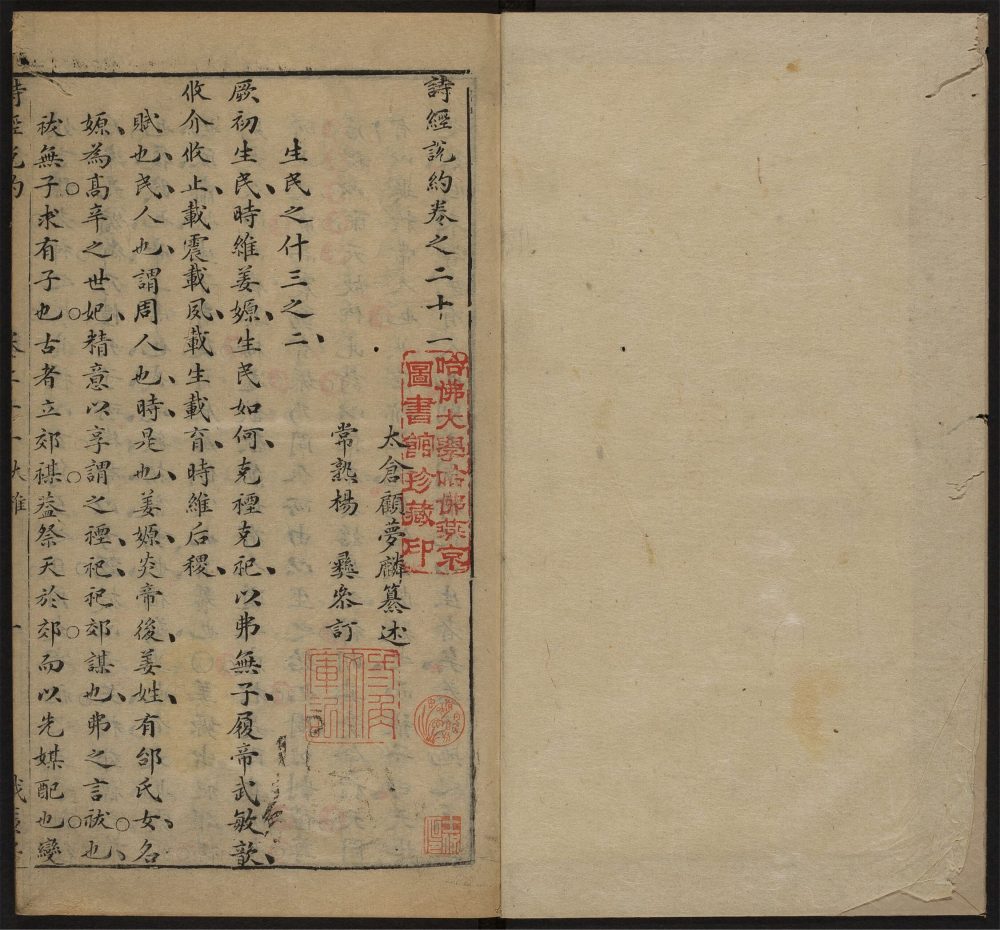 詩經說約卷之二十一
太倉顧夢麟纂述
常熟楊彝叅訂
生民之什三之二
厥初生民時維姜嫄生民如何克禋克祀以弗無子履帝武敏歆
攸介攸止載震載夙載生載育時維后稷
賦也民人也謂周人也時是也姜嫄炎帝後姜姓有邰氏女名
嫄為高辛之世妃精意以享謂之禋祀祀郊禖也弗之言祓也
祓無子求有子也古者立郊禖葢祭天於郊而以先媒配也變
哈佛大學哈佛燕京
圖書館珍藏印